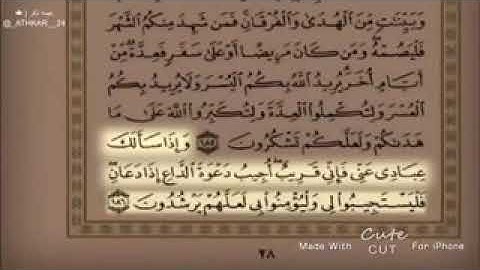 @_ATHKAR__24
وَبَيِّنَٰتٍ مِّنَ ٱلْهُدَىٰ وَٱلْفُرْقَانِ فَمَن شَهِدَ مِنكُمُ ٱلشَّهْرَ
فَلْيَصُمْهُ وَمَن كَانَ مَرِيضًا أَوْ عَلَىٰ سَفَرٍ فَعِدَّةٌ مِّنْ
أَيَّامٍ أُخَرَ يُرِيدُ ٱللَّهُ بِكُمُ ٱلْيُسْرَ وَلَا يُرِيدُ بِكُمُ
ٱلْعُسْرَ وَلِتُكْمِلُوا۟ ٱلْعِدَّةَ وَلِتُكَبِّرُوا۟ ٱللَّهَ عَلَىٰ مَا
هَدَىٰكُمْ وَلَعَلَّكُمْ تَشْكُرُونَ ١٨٥ وَإِذَا سَأَلَكَ
عِبَادِى عَنِّى فَإِنِّى قَرِيبٌ أُجِيبُ دَعْوَةَ ٱلدَّاعِ إِذَا دَعَانِ
فَلْيَسْتَجِيبُوا۟ لِى وَلْيُؤْمِنُوا۟ بِى لَعَلَّهُمْ يَرْشُدُونَ ١٨٦
٢٨
Made With Cute CUT For iPhone